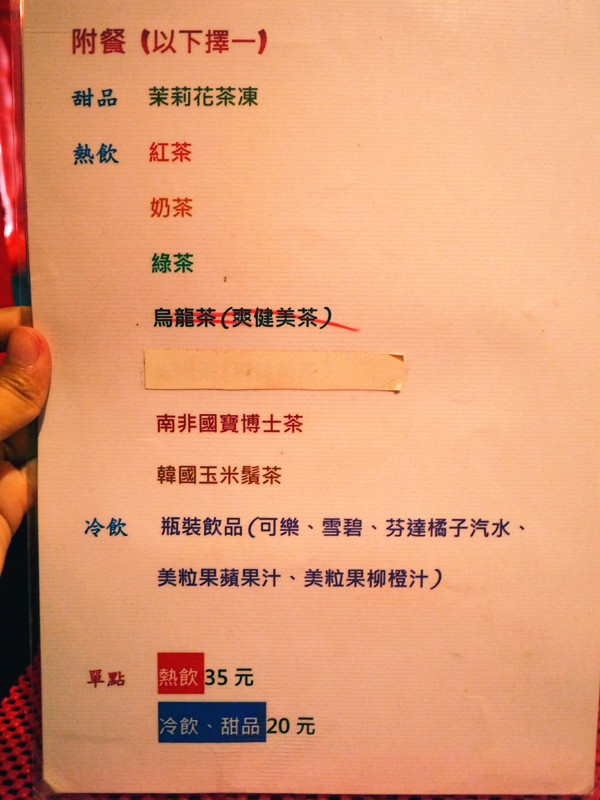 附餐 (以下擇一)
甜品 茉莉花茶凍
熱飲 紅茶
奶茶
綠茶
烏龍茶(爽健美茶)
南非國寶博士茶
韓國玉米鬚茶
冷飲 瓶裝飲品(可樂、雪碧、芬達橘子汽水、
美粒果蘋果汁、美粒果柳橙汁)
單點 熱飲35 元
冷飲、甜品20 元